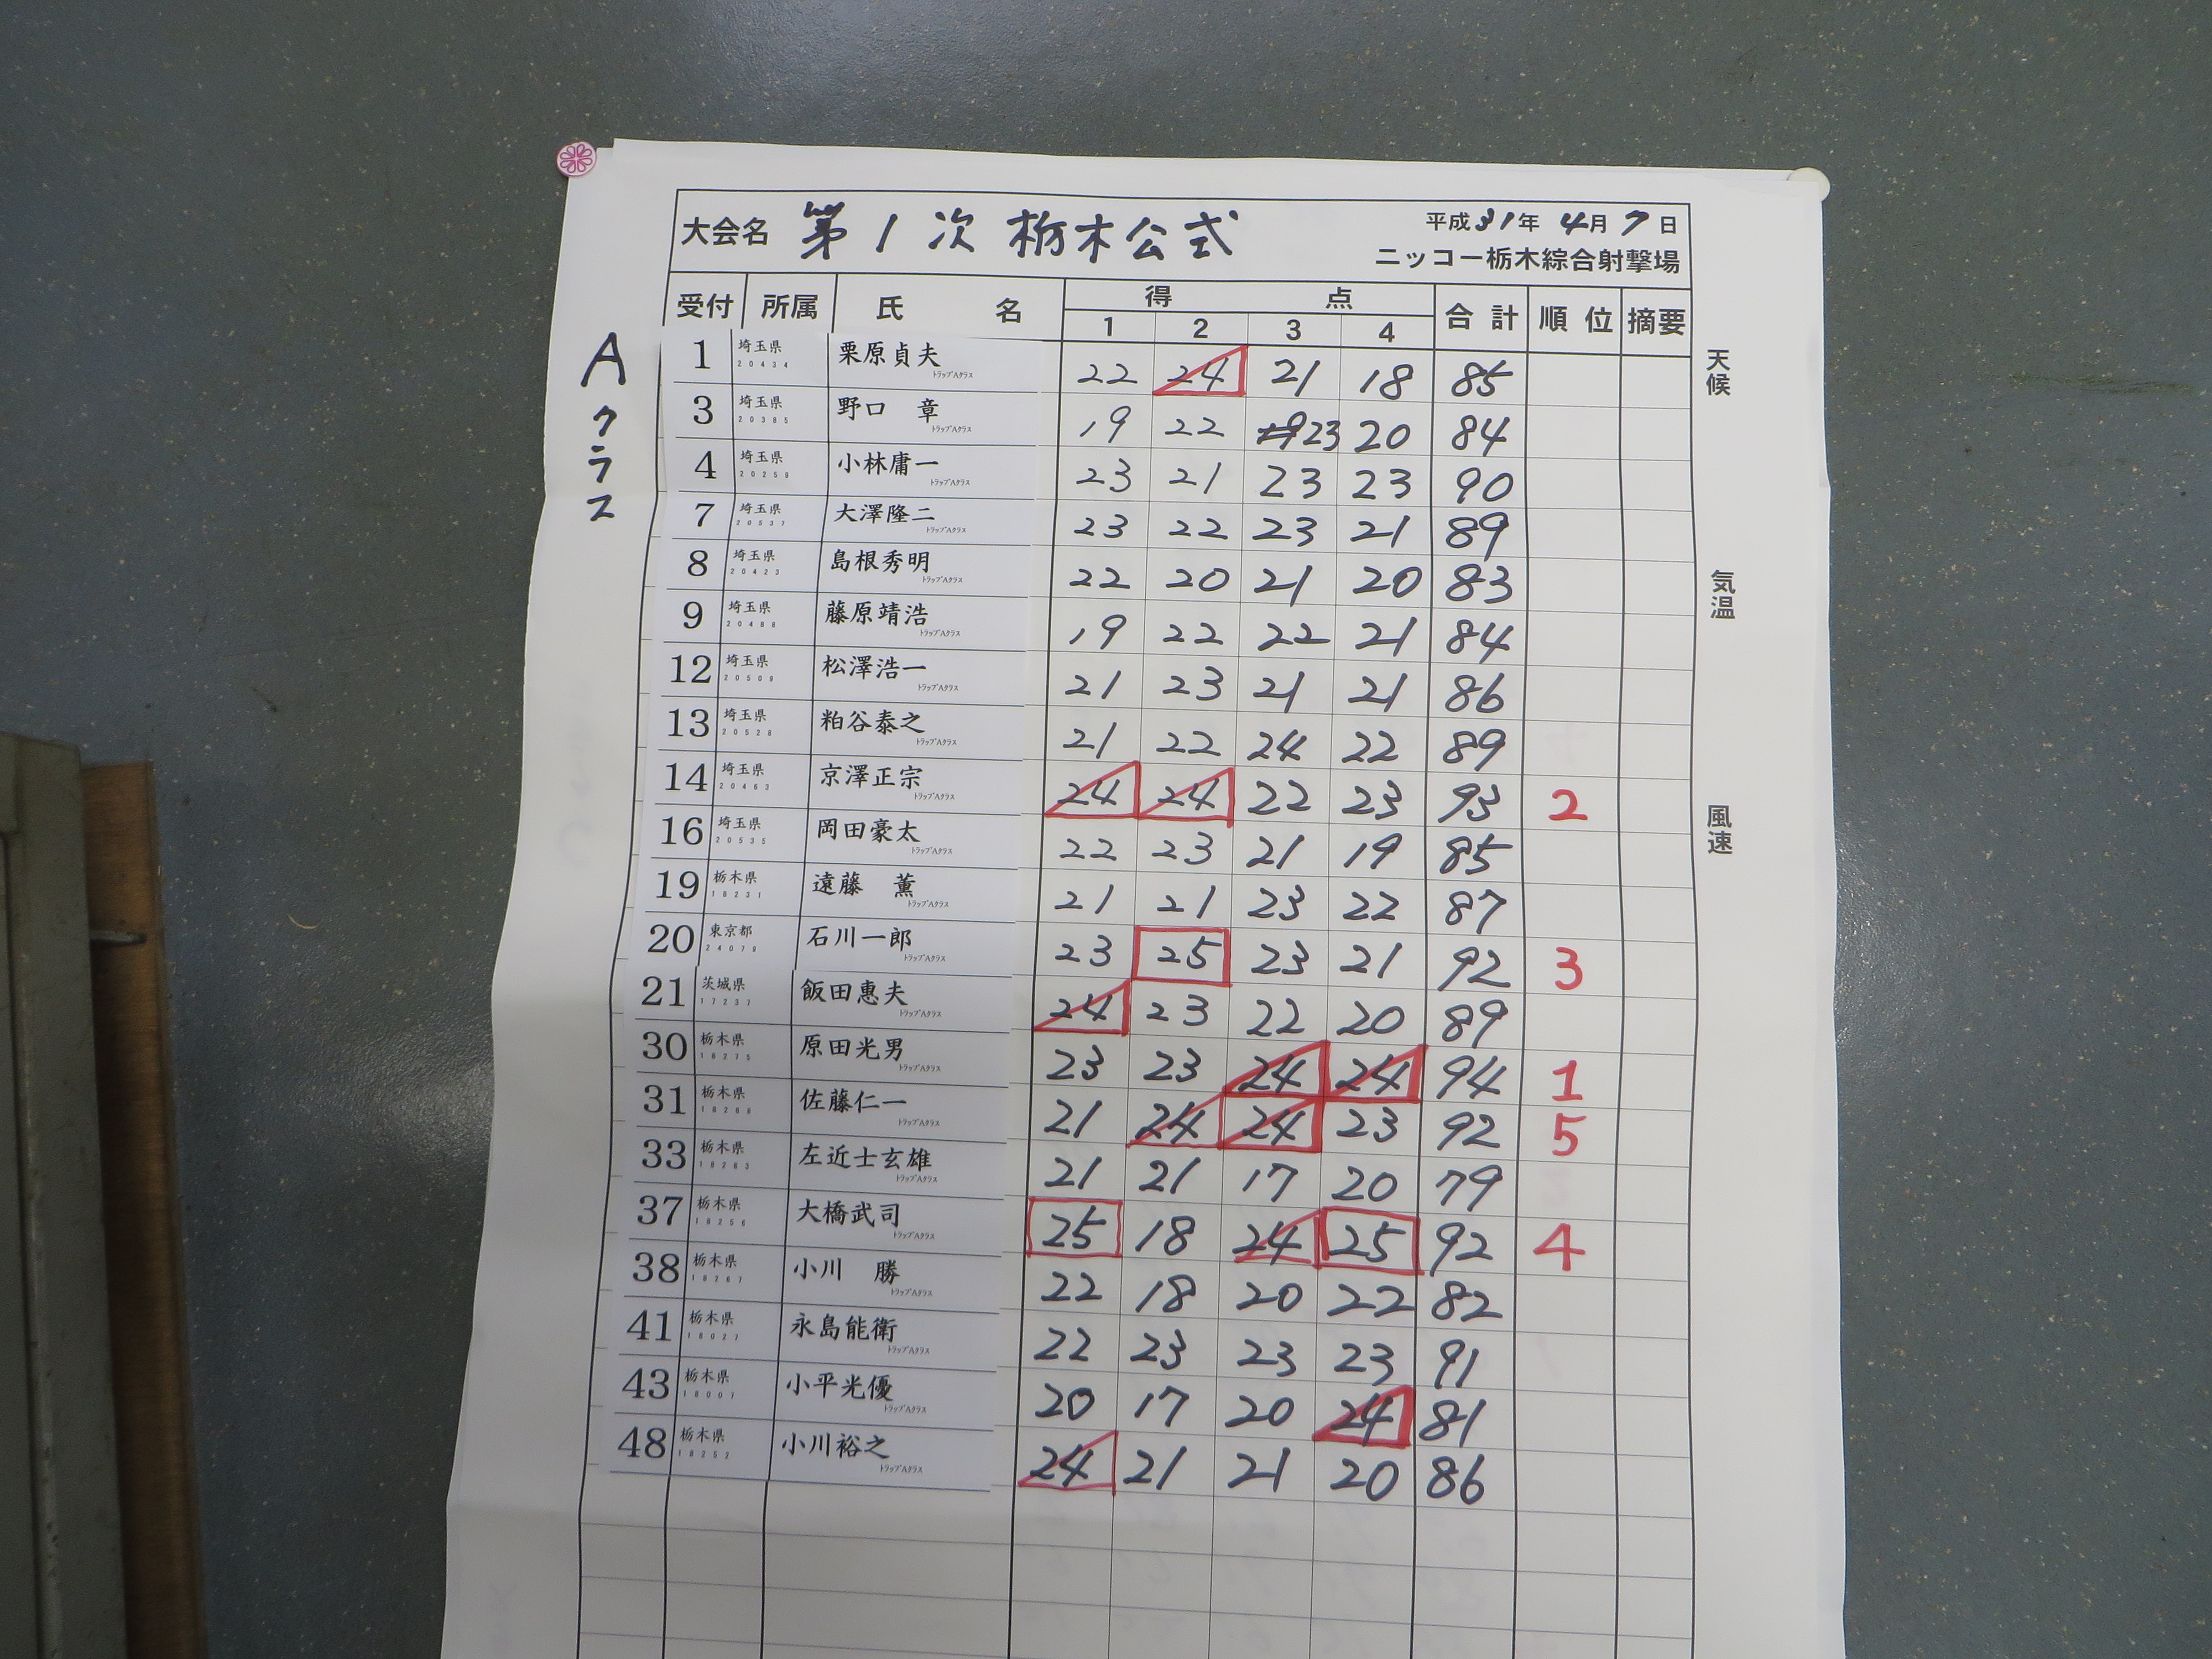 大会名 第1次 栃木公式 平成31年 4月 7日
ニッコー栃木綜合射撃場
受付 所属 氏 名 得 点 合計 順位 摘要
1 2 3 4
Aクラス
天候
気温
風速
1 埼玉県 20434 栗原貞夫 トラップAクラス 22 24 21 18 85
3 埼玉県 20385 野口 章 トラップAクラス 19 22 23 20 84
4 埼玉県 20259 小林庸一 トラップAクラス 23 21 23 23 90
7 埼玉県 20537 大澤隆二 トラップAクラス 23 22 23 21 89
8 埼玉県 20423 島根秀明 トラップAクラス 22 20 21 20 83
9 埼玉県 20488 藤原靖浩 トラップAクラス 19 22 22 21 84
12 埼玉県 20509 松澤浩一 トラップAクラス 21 23 21 21 86
13 埼玉県 20528 粕谷泰之 トラップAクラス 21 22 24 22 89
14 埼玉県 20463 京澤正宗 トラップAクラス 24 24 22 23 93 2
16 埼玉県 20535 岡田豪太 トラップAクラス 22 23 21 19 85
19 栃木県 18231 遠藤 薫 トラップAクラス 21 21 23 22 87
20 東京都 24079 石川一郎 トラップAクラス 23 25 23 21 92 3
21 茨城県 17237 飯田恵夫 トラップAクラス 24 23 22 20 89
30 栃木県 18275 原田光男 トラップAクラス 23 23 24 24 94 1
31 栃木県 18288 佐藤仁一 トラップAクラス 21 24 24 23 92 5
33 栃木県 18283 左近士玄雄 トラップAクラス 21 21 17 20 79
37 栃木県 18256 大橋武司 トラップAクラス 25 18 24 25 92 4
38 栃木県 18267 小川 勝 トラップAクラス 22 18 20 22 82
41 栃木県 18027 永島能衛 トラップAクラス 22 23 23 23 91
43 栃木県 18007 小平光優 トラップAクラス 20 17 20 24 81
48 栃木県 18252 小川裕之 トラップAクラス 24 21 21 20 86